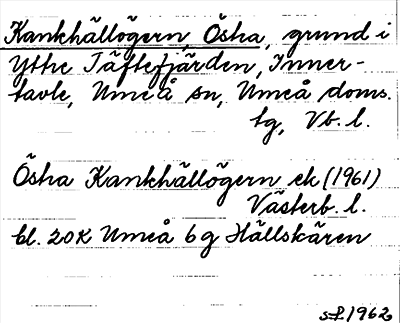 Kankhällögern, Östra, grund i
Yttre Täftefjärden, Inner-
tavle, Umeå sn, Umeå doms.
tg, Vb. l.
Östra Kankhällögern ek (1961)
Västerb. l.
bl. 20K Umeå 6g Hällskären
1962